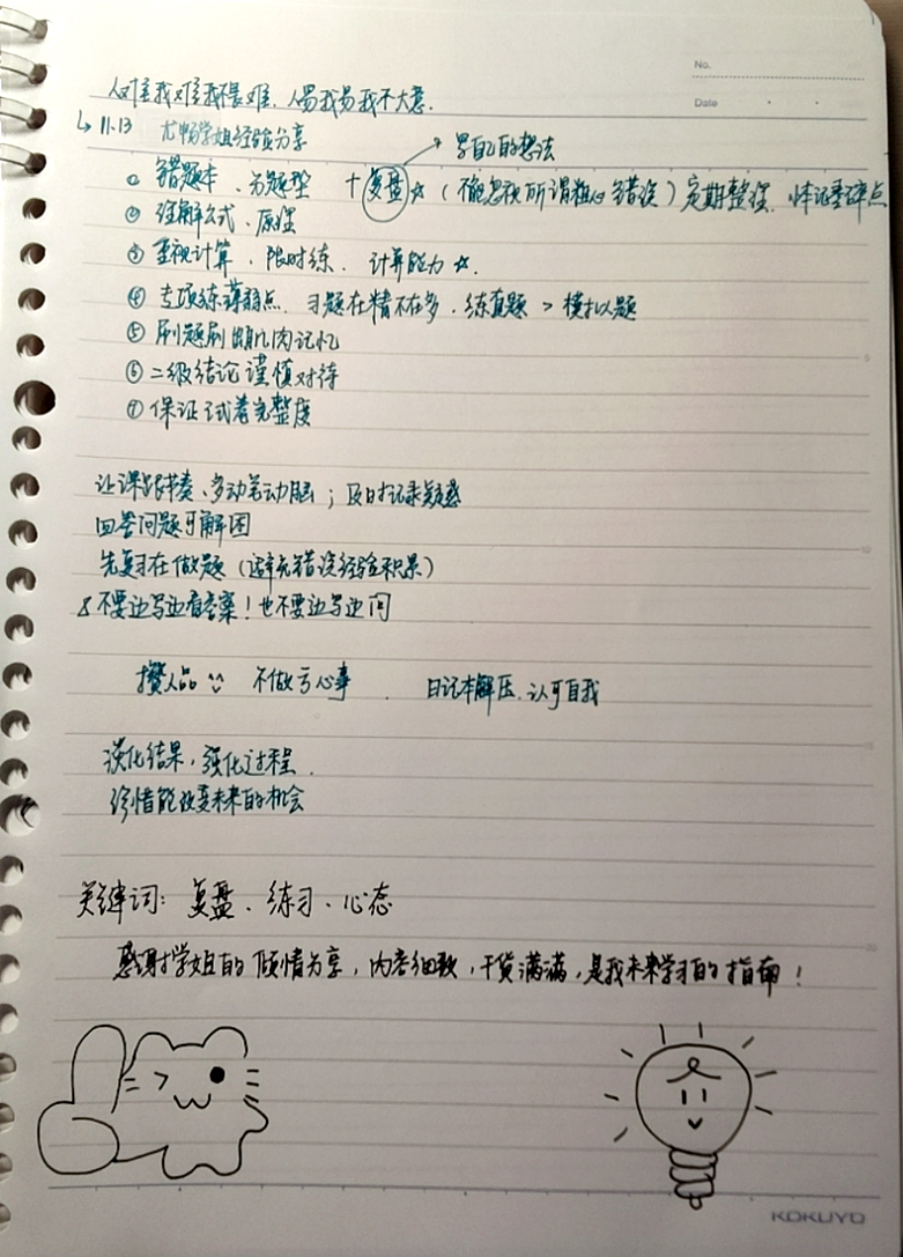 No.
人难我难我不畏难，人易我易我不大意.
Date
↳ 11.13 尤畅学姐经验分享
→ 写自己的想法
① 错题本、分题型 + 复盘☆（不能忽视所谓粗心错误）定期整理、快记零碎点
② 理解公式、原理
③ 重视计算、限时练、计算能力☆.
④ 专项练薄弱点、习题在精不在多、练真题 > 模拟题
⑤ 刷题刷出肌肉记忆
⑥ 二级结论谨慎对待
⑦ 保证试卷完整度
让课跟节奏、多动笔动脑；及时记录疑惑
回答问题可解困
先复习在做题（避免错误经验积累）
不要边写边看答案！也不要边写边问
攒人品 不做亏心事 日记本解压、认可自我
淡化结果，强化过程.
珍惜能改变未来的机会
关键词：复盘、练习、心态
感谢学姐的倾情分享，内容细致，干货满满，是我未来学习的指南！
KOKUYO